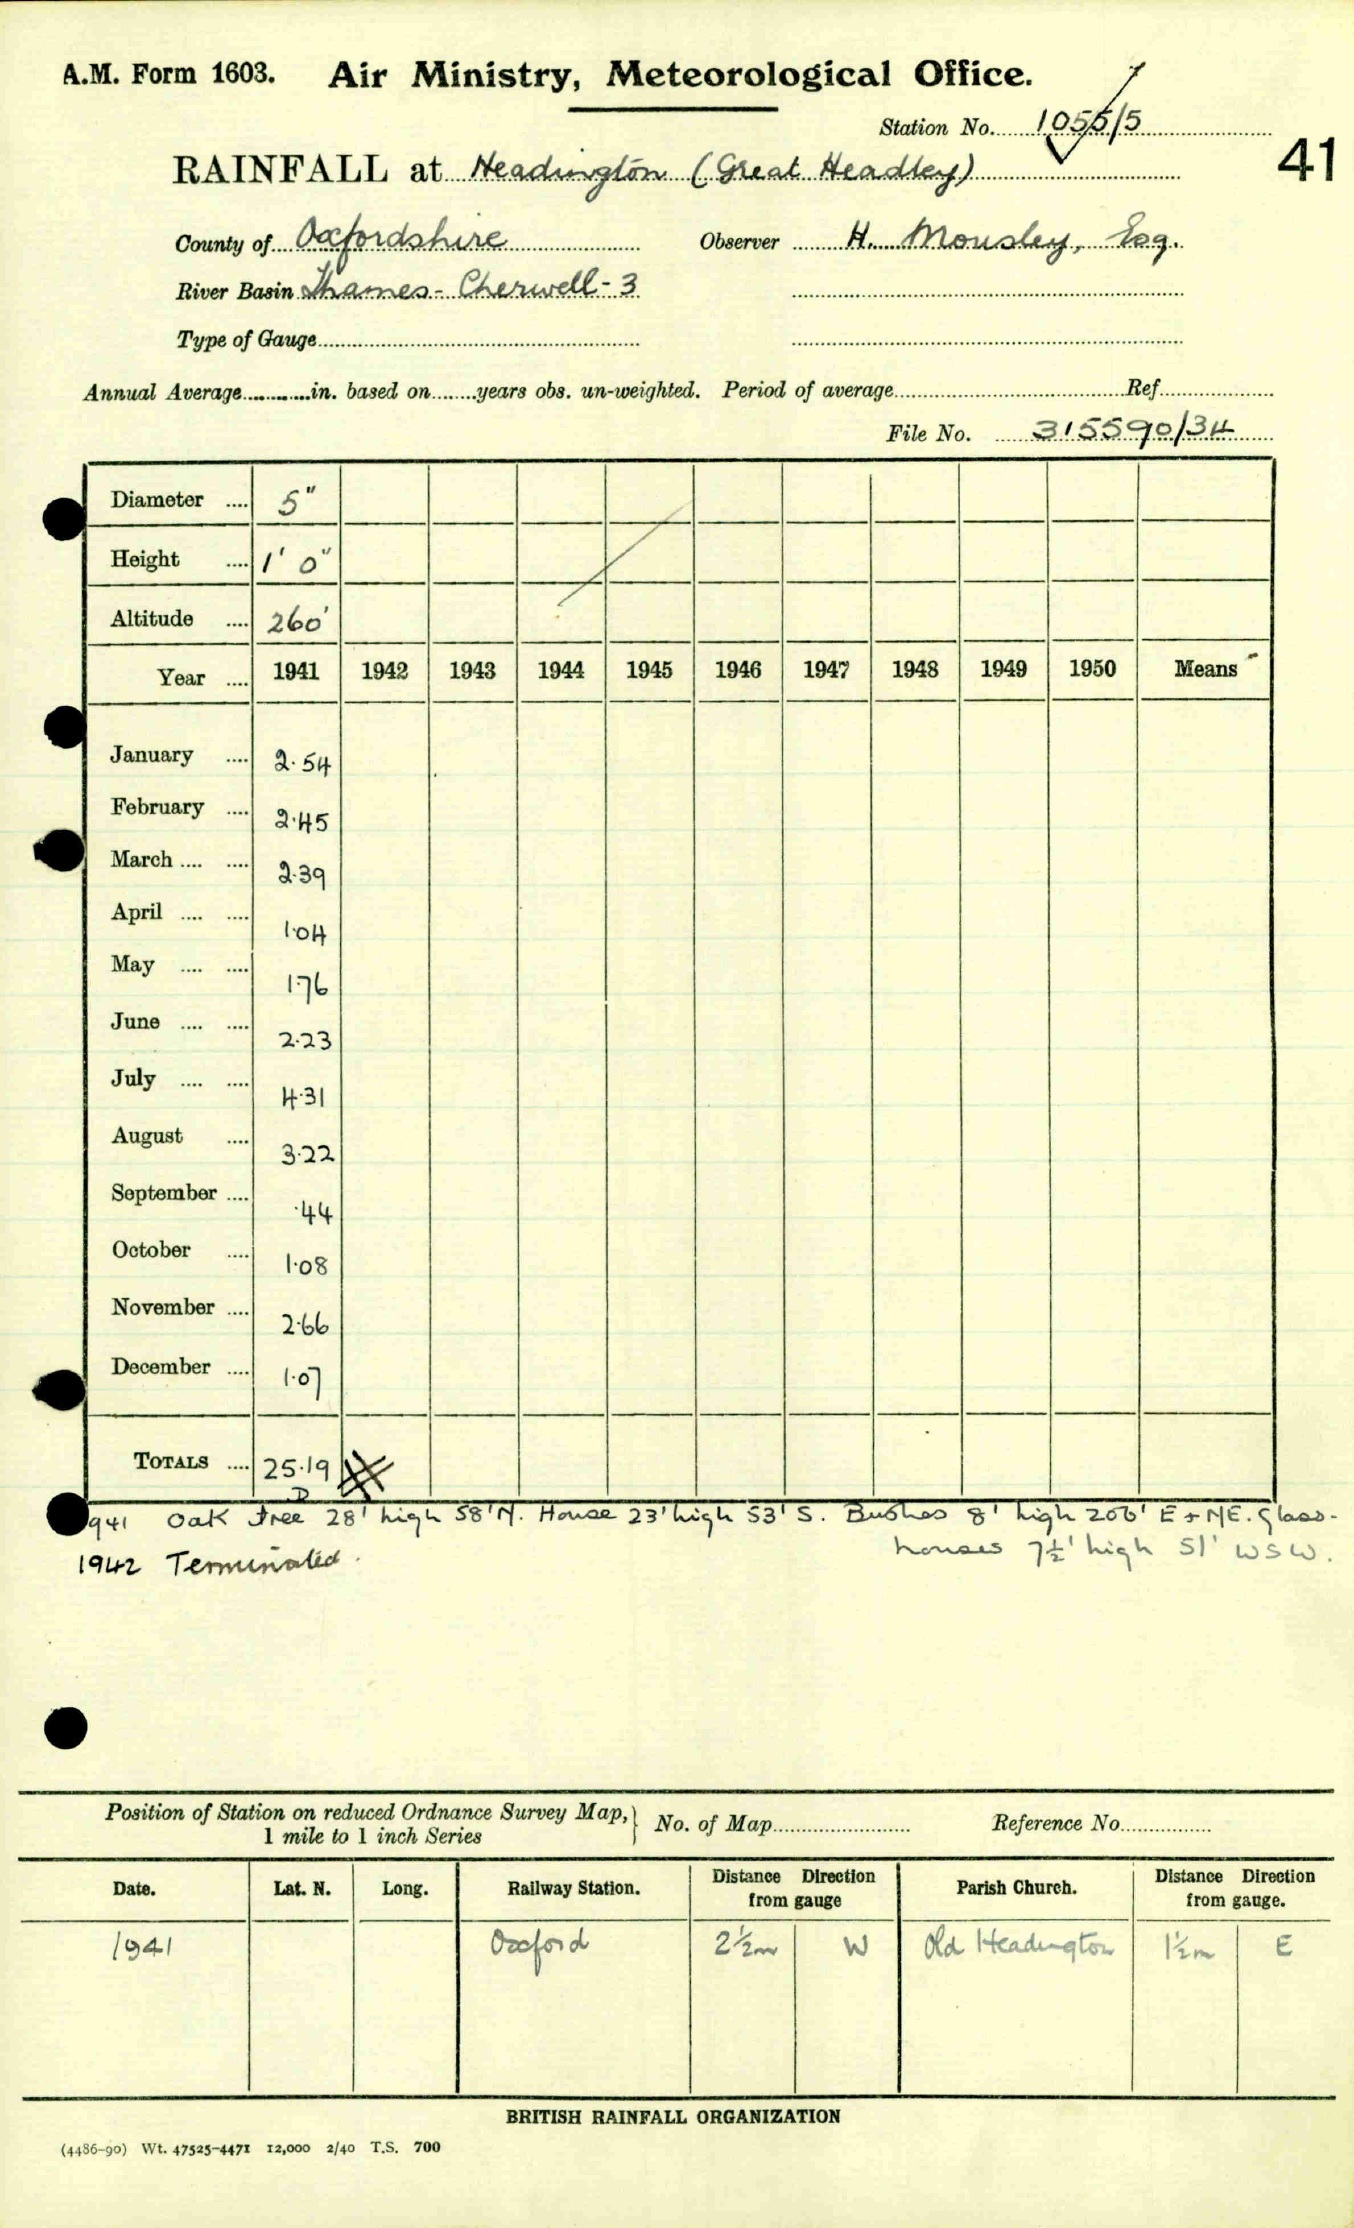 A.M. Form 1603. Air Ministry, Meteorological Office.
Station No. 1055/5
RAINFALL at Headington (Great Headley)
41
County of Oxfordshire Observer H. Mousley, Esq.
River Basin Thames - Cherwell - 3
Type of Gauge
Annual Average in. based on years obs. un-weighted. Period of average Ref
File No. 315590/34
Diameter .... 5"
Height .... 1' 0"
Altitude .... 260'
Year .... 1941 1942 1943 1944 1945 1946 1947 1948 1949 1950 Means
January .... 2.54
February .... 2.45
March .... .... 2.39
April .... .... 1.04
May .... .... 1.76
June .... .... 2.23
July .... .... 4.31
August .... 3.22
September .... .44
October .... 1.08
November .... 2.66
December .... 1.07
TOTALS .... 25.19
D
1941 Oak tree 28' high 58' N. House 23' high 53' S. Bushes 8' high 200' E + NE. Glass-
houses 7½' high 51' WSW.
1942 Terminated.
Position of Station on reduced Ordnance Survey Map,} No. of Map Reference No
1 mile to 1 inch Series
Date. Lat. N. Long. Railway Station. Distance Direction from gauge Parish Church. Distance Direction from gauge.
1941 Oxford 2½m W Old Headington 1½m E
BRITISH RAINFALL ORGANIZATION
(4486-90) Wt. 47525-4471 12,000 2/40 T.S. 700